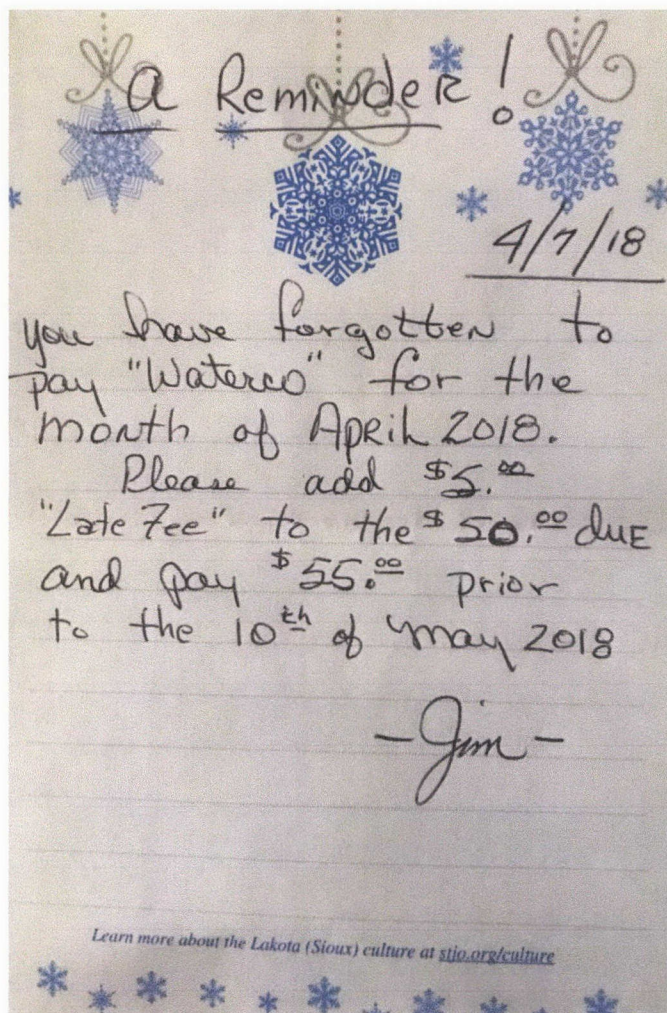 a Reminder!
4/7/18
you have forgotten to
pay "Waterco" for the
month of April 2018.
Please add $5.00
"Late Fee" to the $50.00 due
and pay $55.00 prior
to the 10th of may 2018
-Jim-
Learn more about the Lakota (Sioux) culture at stjo.org/culture